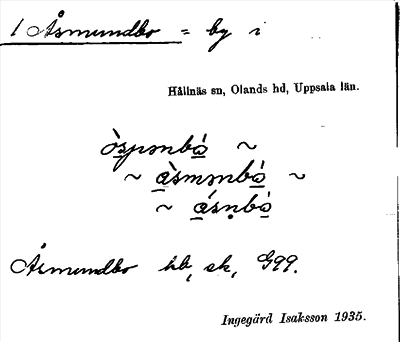 1 Åsmundbo = by i
Hållnäs sn, Olands hd, Uppsala län.
òspənbó ~
~ àsmənbó ~
~ ásṇbó
Åsmundbo hb, ek, G99.
Ingegärd Isaksson 1935.